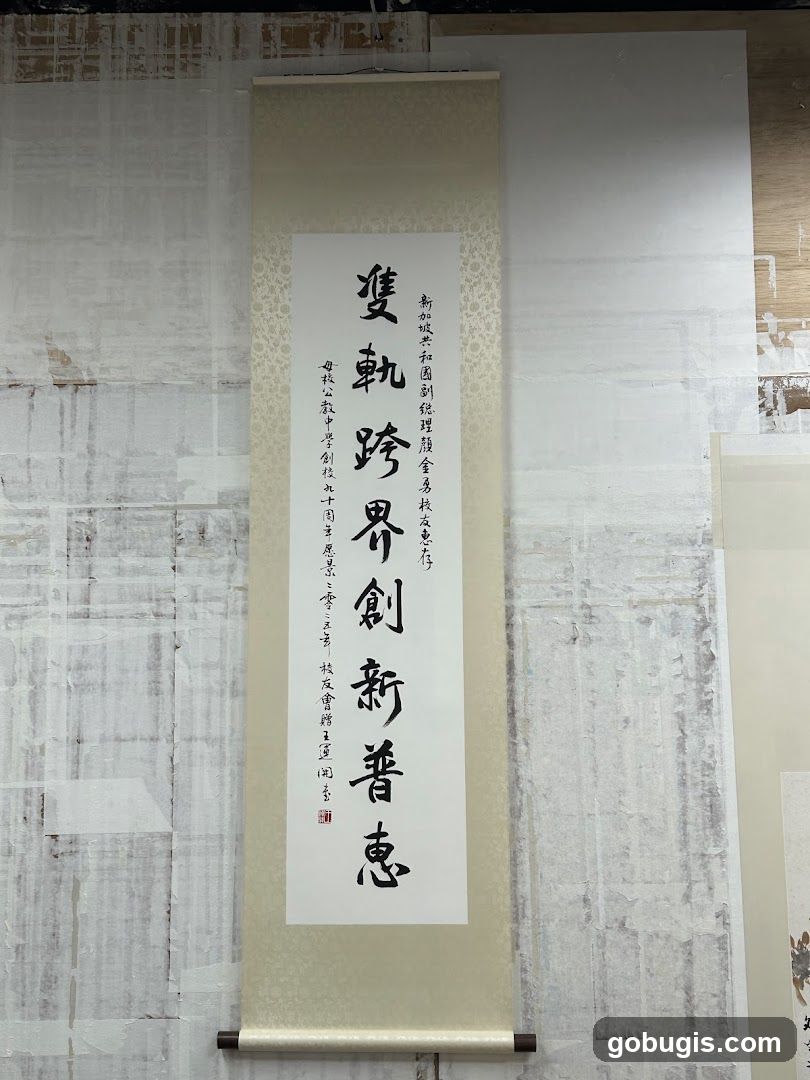 新加坡共和國副總理顏金勇校友惠存
雙軌跨界創新普惠
母校公教中學創校九十周年愿景二零二五年校友會贈王運開書
gobugis.com